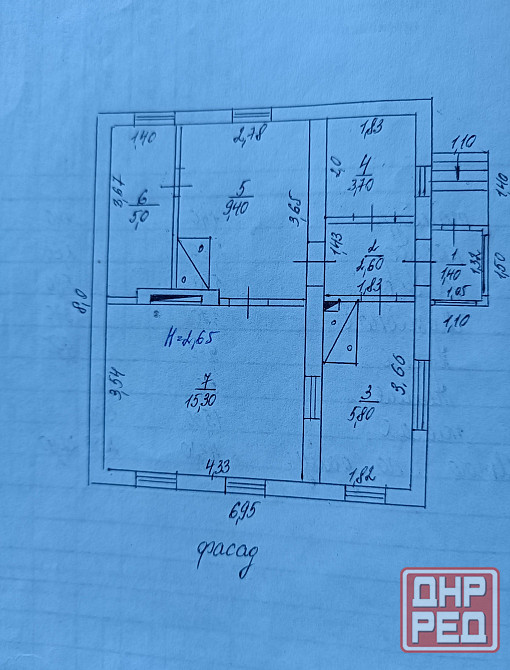 1,40
2,78
1,83
1,10
3,67
6
5,0
5
9,40
3,65
2,0
4
3,70
1,40
1,43
2
2,60
1,83
1
1,40
1,32
1,50
1,05
1,10
8,0
2
H=2,65
3,54
7
15,30
3
5,80
3,65
4,33
1,82
6,95
фасад
ДНР
РЕД